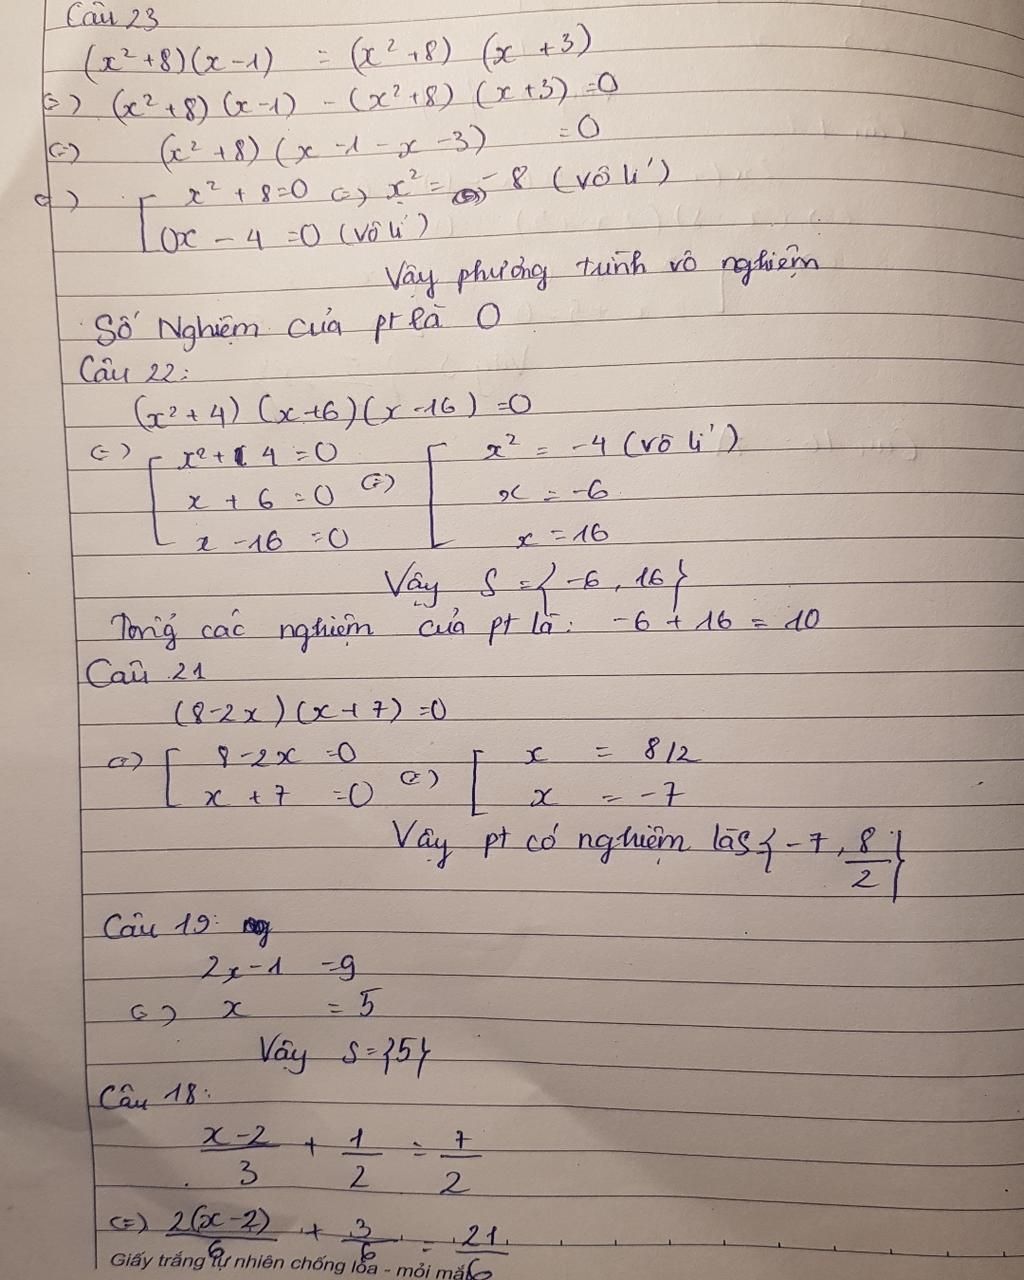 Câu 23
(x² + 8)(x - 1) = (x² + 8) (x + 3)
(=) (x² + 8) (x - 1) - (x² + 8) (x + 3) = 0
(=) (x² + 8) (x - 1 - x - 3) = 0
(=) [ x² + 8 = 0 (=) x² = - 8 (vô lí)
0x - 4 = 0 (vô lí)
Vậy phương trình vô nghiệm
Số Nghiệm của pt là 0
Câu 22:
(x² + 4) (x + 6)(x - 16) = 0
(=) [ x² + 4 = 0 (=) [ x² = -4 (vô lí)
x + 6 = 0 x = -6
x - 16 = 0 x = 16
Vậy S = { -6, 16 }
Tổng các nghiệm của pt là: -6 + 16 = 10
Câu 21
(8 - 2x) (x + 7) = 0
(=) [ 8 - 2x = 0 (=) [ x = 8/2
x + 7 = 0 x = -7
Vậy pt có nghiệm là S { -7, 8/2 }
Câu 19:
2x - 1 = 9
(=) x = 5
Vậy S = {5}
Câu 18:
x - 2 / 3 + 1/2 = 7/2
(=) 2(x - 2) / 6 + 3/6 = 21/6
Giấy trắng tự nhiên chống lóa - mỏi mắ